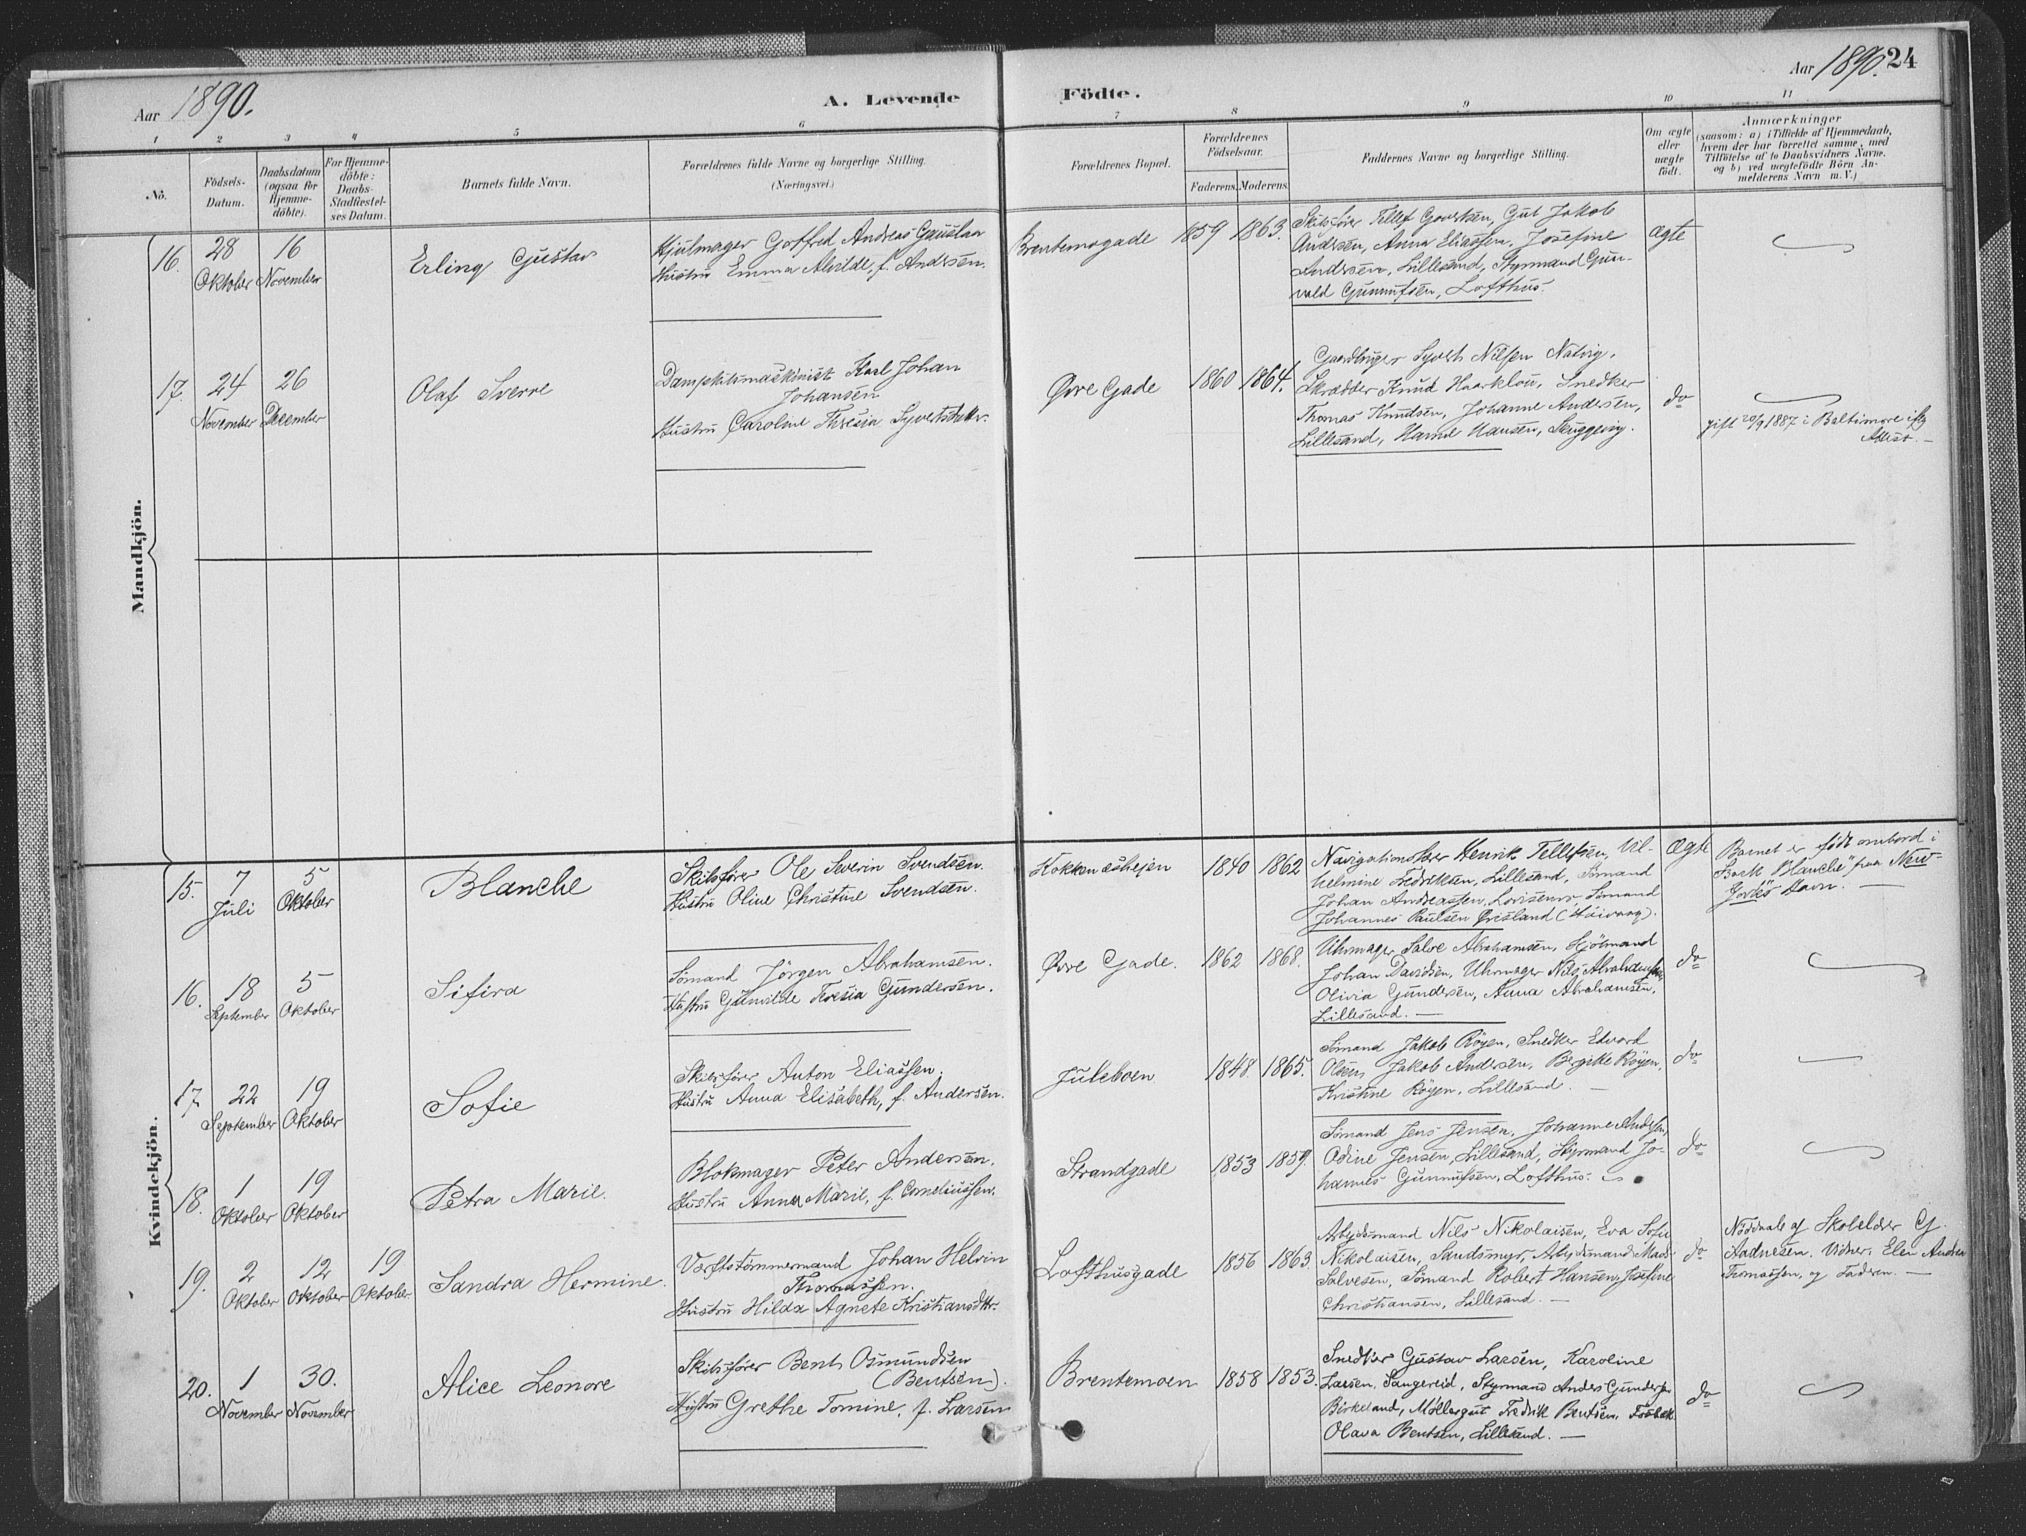 Aar 1890.
A. Levende Födte.
Aar 1890. 24
1 2 3 4 5 6 7 8 9 10 11
No.
Födsels-
Datum.
Daabsdatum
(ogsaa for
Hjemme-
döbte).
For Hjemme-
döbte:
Daabs-
Stadfæstel-
ses Datum.
Barnets fulde Navn.
Forældrenes fulde Navne og borgerlige Stilling.
(Næringsvei.)
Forældrenes Bopæl.
Forældrenes
Födselsaar.
Faderens. Moderens.
Faddernes Navne og borgerlige Stilling.
Om ægte
eller
uægte
födt.
Anmærkninger
(saasom: a) i Tilfælde af Hjemmedaab,
hvem der har forrettet samme, med
Tilföielse af to Daabsvidners Navne,
og b) ved uægtefödte Börn An-
melderens Navn m. V.)
Mandkjön.
16.
28
Oktober
16
November
Erling Gustav
Hjulmager Gotfred Andreas Gaustan
Hustru Emma Alvilde, f. Andersen.
Brentemogade
1859 1863.
Skibsfører Tellef Govertsen, Gut Jakob
Andersen, Anna Eliassen, Josefine
Andersen, Lillesand, Styrmand Gun-
vald Gunnufsen, Lofthus.
Ægte
17.
24
November
26
December
Olaf Sverre
Dampskibsmaskinist Karl Johan
Johansen
Hustru Caroline Thresia Syvertsdatter.
Øvre Gade
1860 1864.
Gaardbruger Syvert Nilsen Natvig,
Skrædder Knud Haarklou, Snedker
Thomas Knudsen, Johanne Andersen,
Lillesand, Hanne Hansen, Skuggevig.
do
gift 20/9 1887 i Baltimore iflg
Attest. —
Kvindekjön.
15.
7
Juli
5
Oktober
Blanche
Skibsfører Ole Severin Svendsen.
Hustru Oline Christine Svendsen.
Kokkenæsheien
1840 1862
Navigationslærer Henrik Tellefsen, Vil-
helmine Fredriksen, Lillesand, Sømand
Johan Andreassen, Sømand
Johannes Paulsen Grisland (Høivaag).
Ægte
Barnet er født ombord i
Bark "Blanche" paa New-
Yorks Havn. —
16.
18
September
5
Oktober
Sifira
Sømand Jörgen Abrahamsen.
Hustru Gunvilde Tresia Gundersen.
Øvre Gade.
1862 1868.
Uhrmager Salve Abrahamsen, Sjömand
Johan Davidsen, Uhrmager Nils Abrahamsen,
Olivia Gundersen, Anna Abrahamsen,
Lillesand. —
do
17.
22
September
19
Oktober
Sofie
Skibsfører Anton Eliassen.
Hustru Anna Elisabeth, f. Andersen.
Juleboen
1848. 1865.
Sømand Jakob Röyen, Snedker Edvard
Olsen, Jakob Andersen, Birgitte Röyen,
Kristine Röyen, Lillesand. —
do
18.
1
Oktober
19
Oktober
Petra Marie.
Blokmager Peter Andersen.
Hustru Anna Marie, f. Corneliussen.
Strandgade
1853 1859.
Sømand Jens Jensen, Johanne Andersen,
Odine Jensen, Lillesand, Styrmand Jo-
hannes Gunnufsen, Lofthus.
do
19.
2
Oktober
12
Oktober
19
Oktober
Sandra Hermine.
Værftstømmermand Johan Helvin
Thomassen.
Hustru Hilda Agnete Kristiansdtr.
Lofthusgade
1856 1863.
Arbeidsmand Nils Nikolaisen, Eva Sofie
Nikolaisen, Sandsmyr, Arbeidsmand Mads
Salvesen, Sømand Robert Hansen, Josefine
Christiansen, Lillesand. —
do
Nöddaab af Skolelærer G.
Aadnesen. Vidner: Elen Andrea
Thomassen, og Faderen. —
20.
1
November
30.
November
Alice Leonore
Skibsfører Bent Osmundsen
(Bentsen).
Hustru Grethe Tomine, f. Larsen
Brentemoen
1858 1853.
Snedker Gustav Larsen, Karoline
Larsen, Sangereid, Styrmand Anders Gundersen
Birkeland, Møllergut Fredrik Bentsen, Fosbek
Olava Bentsen, Lillesand. —
do